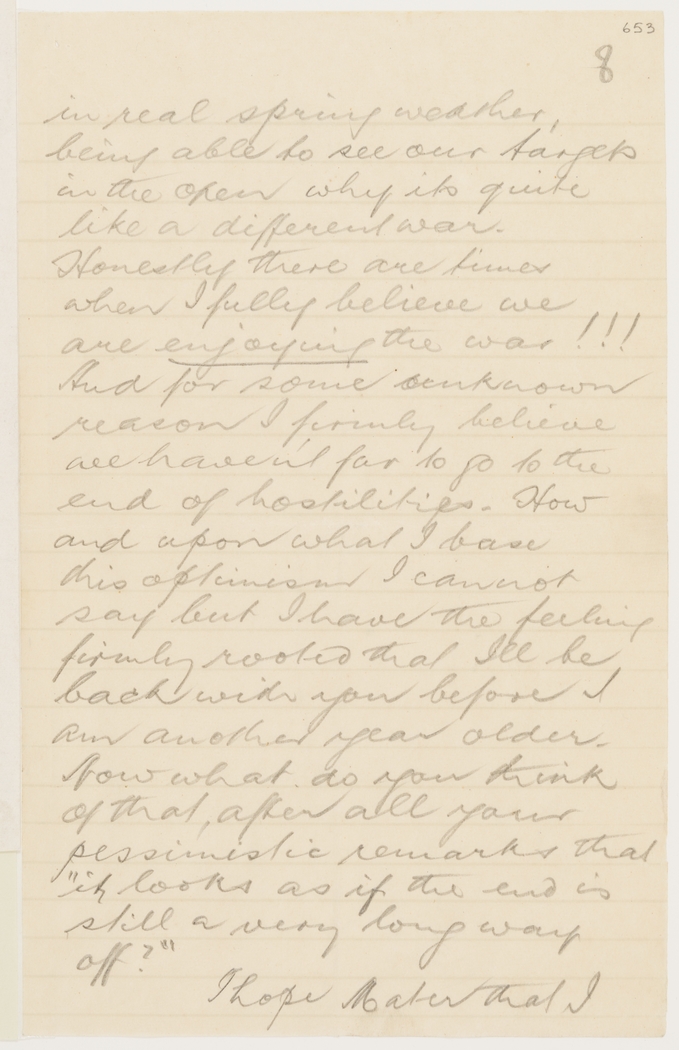 653
8
in real spring weather,
being able to see our targets
in the open why its quite
like a different war.
Honestly there are times
when I fully believe we
are enjoying the war !!!
And for some unknown
reason I firmly believe
we haven't far to go to the
end of hostilities. How
and upon what I base
this optimism I cannot
say but I have the feeling
firmly rooted that I'll be
back with you before I
am another year older.
Now what do you think
of that, after all your
pessimistic remarks that
"it looks as if the end is
still a very long way
off?"
I hope Mater that I